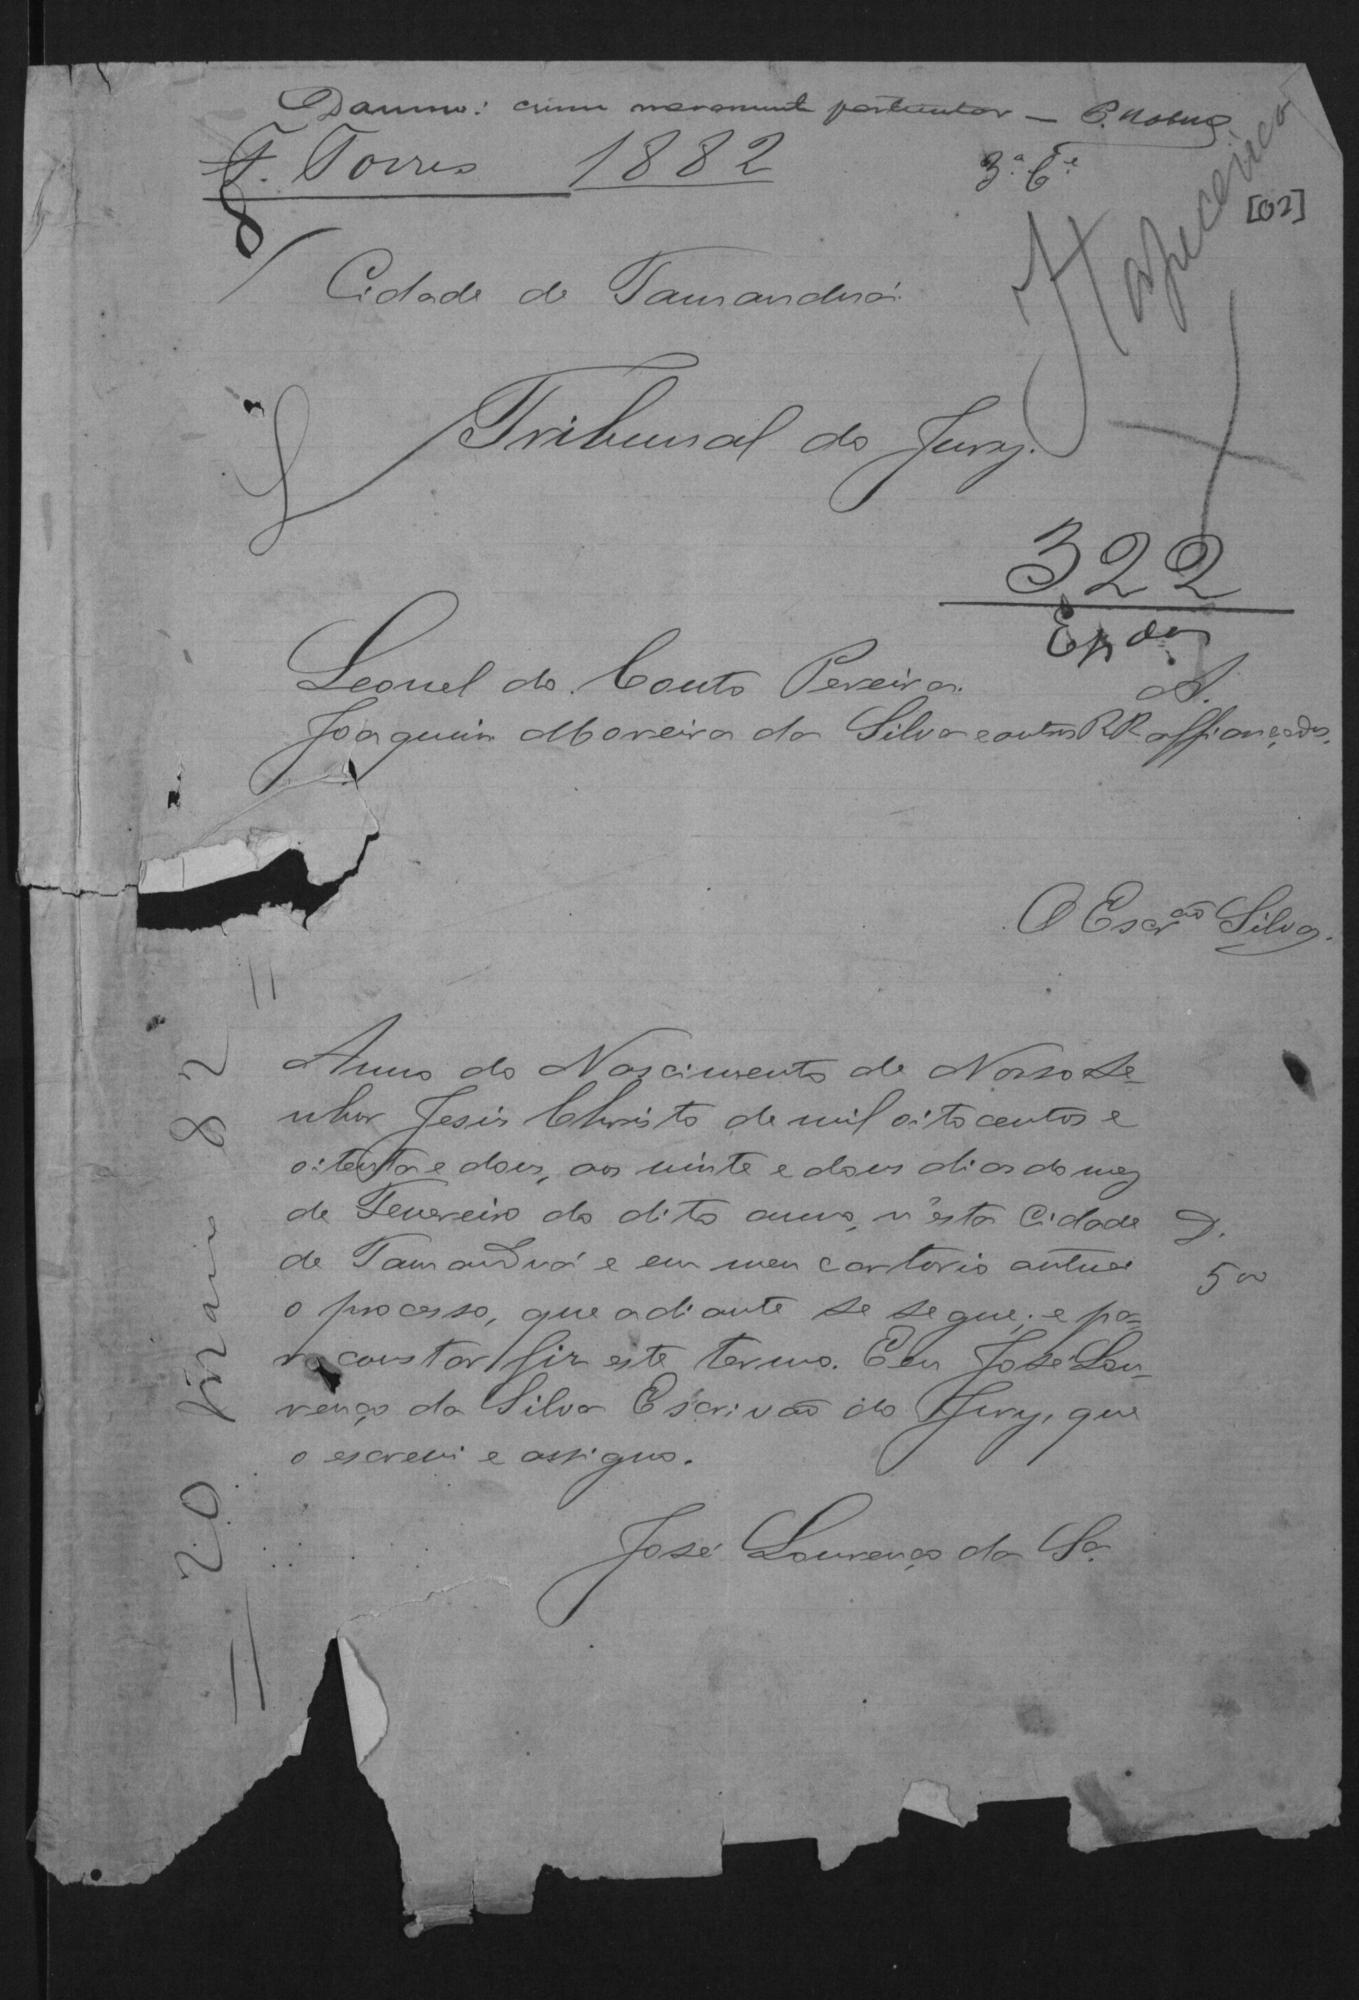 Damno: crime meramente particular —
F. Torres 1882
3.ª C.ª
[02]
Itapecerica
Cidade de Tamanduá
Tribunal do Jury.
322
Leonel do Couto Pereira. A.
Joaquim Moreira da Silva e outros RR affiançados.
O Escr.ão Silva.
Anno do Nascimento de Nosso Se-
nhor Jesus Christo de mil oito centos e
oitenta e dous, aos vinte e dous dias do mez
de Fevereiro do dito anno, n'esta Cidade
D.
de Tamanduá e em meu cartorio autuei
500
o processo, que adiante se segue; e pa-
ra constar fiz este termo. Eu José Lou-
renço da Silva Escrivão do Jury, que
o escrevi e assigno.
José Lourenço da Sª
20 82